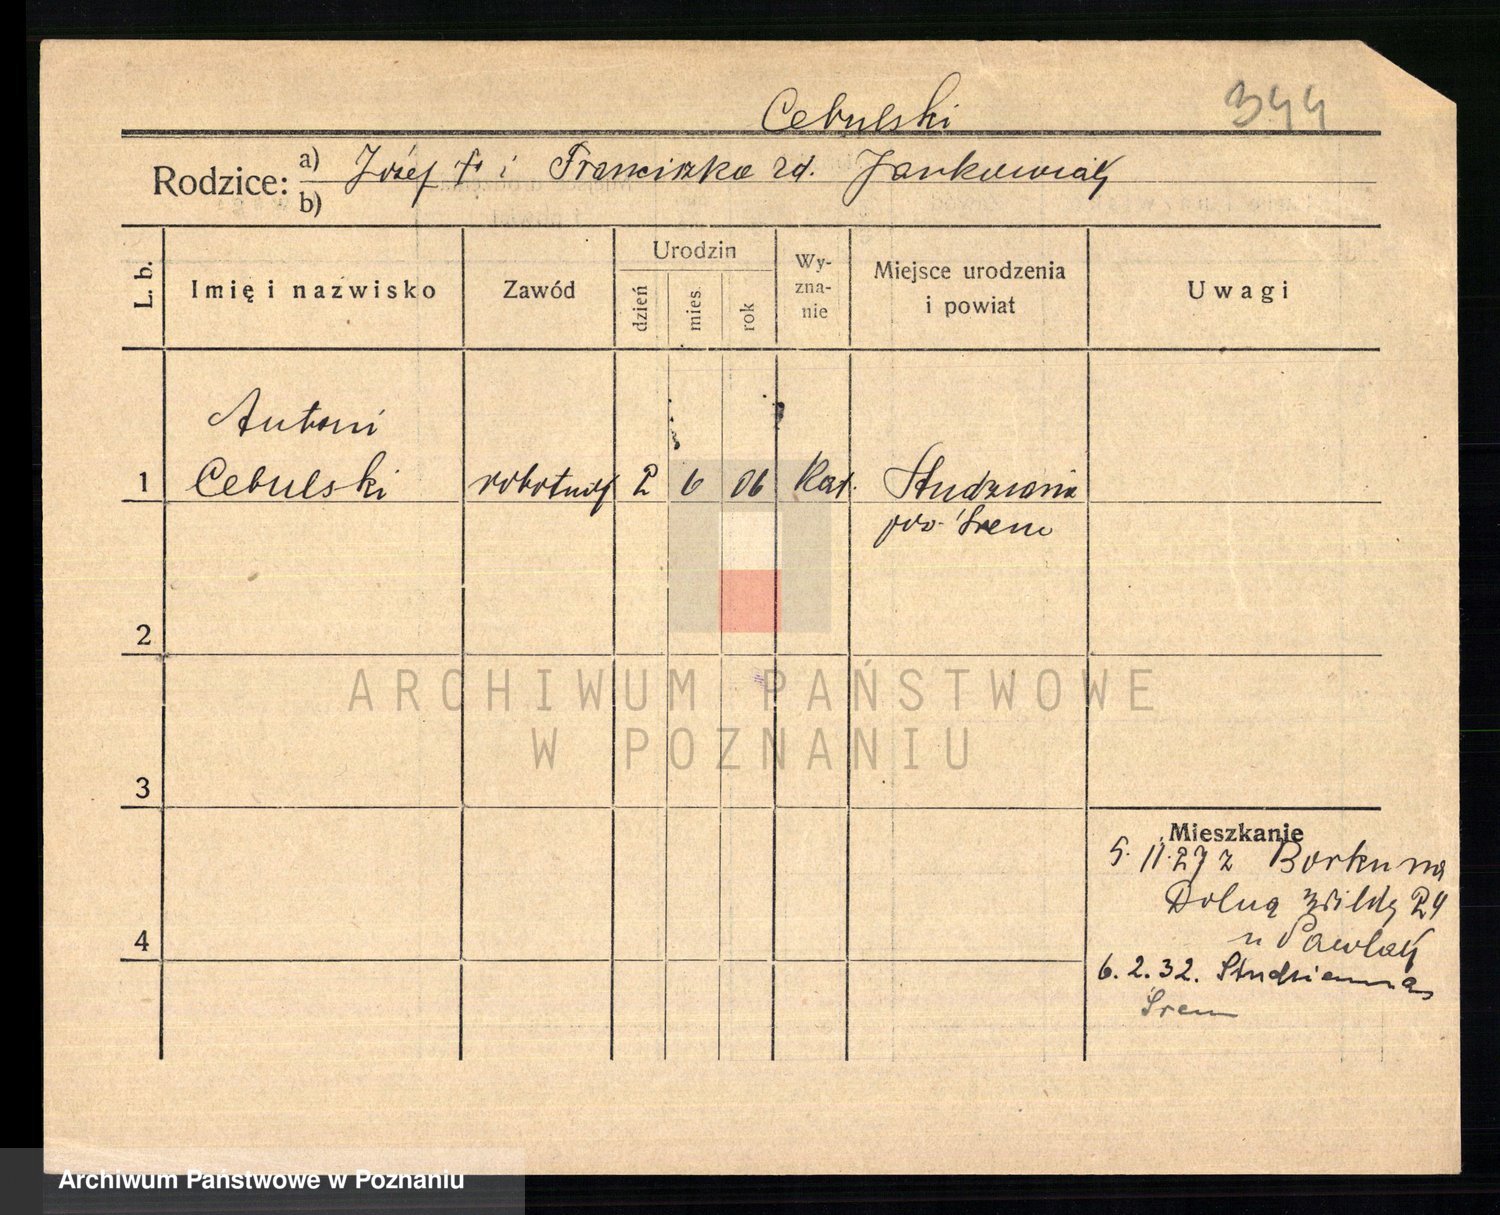 Cebulski 344
Rodzice: a) Józef + i Franciszka zd. Jankowiak
b)
L. b. Imię i nazwisko Zawód Urodzin dzień mies. rok Wy-zna-nie Miejsce urodzenia i powiat Uwagi
Antoni
1 Cebulski robotnik 2 6 06 Kat. Studzianna
pow. Śrem
2
ARCHIWUM PAŃSTWOWE
W POZNANIU
3
Mieszkanie
5. 11. 27 z Borku na
Dolną Wildę 24
4 u Pawlak
6. 2. 32. Studzianna
Śrem
Archiwum Państwowe w Poznaniu